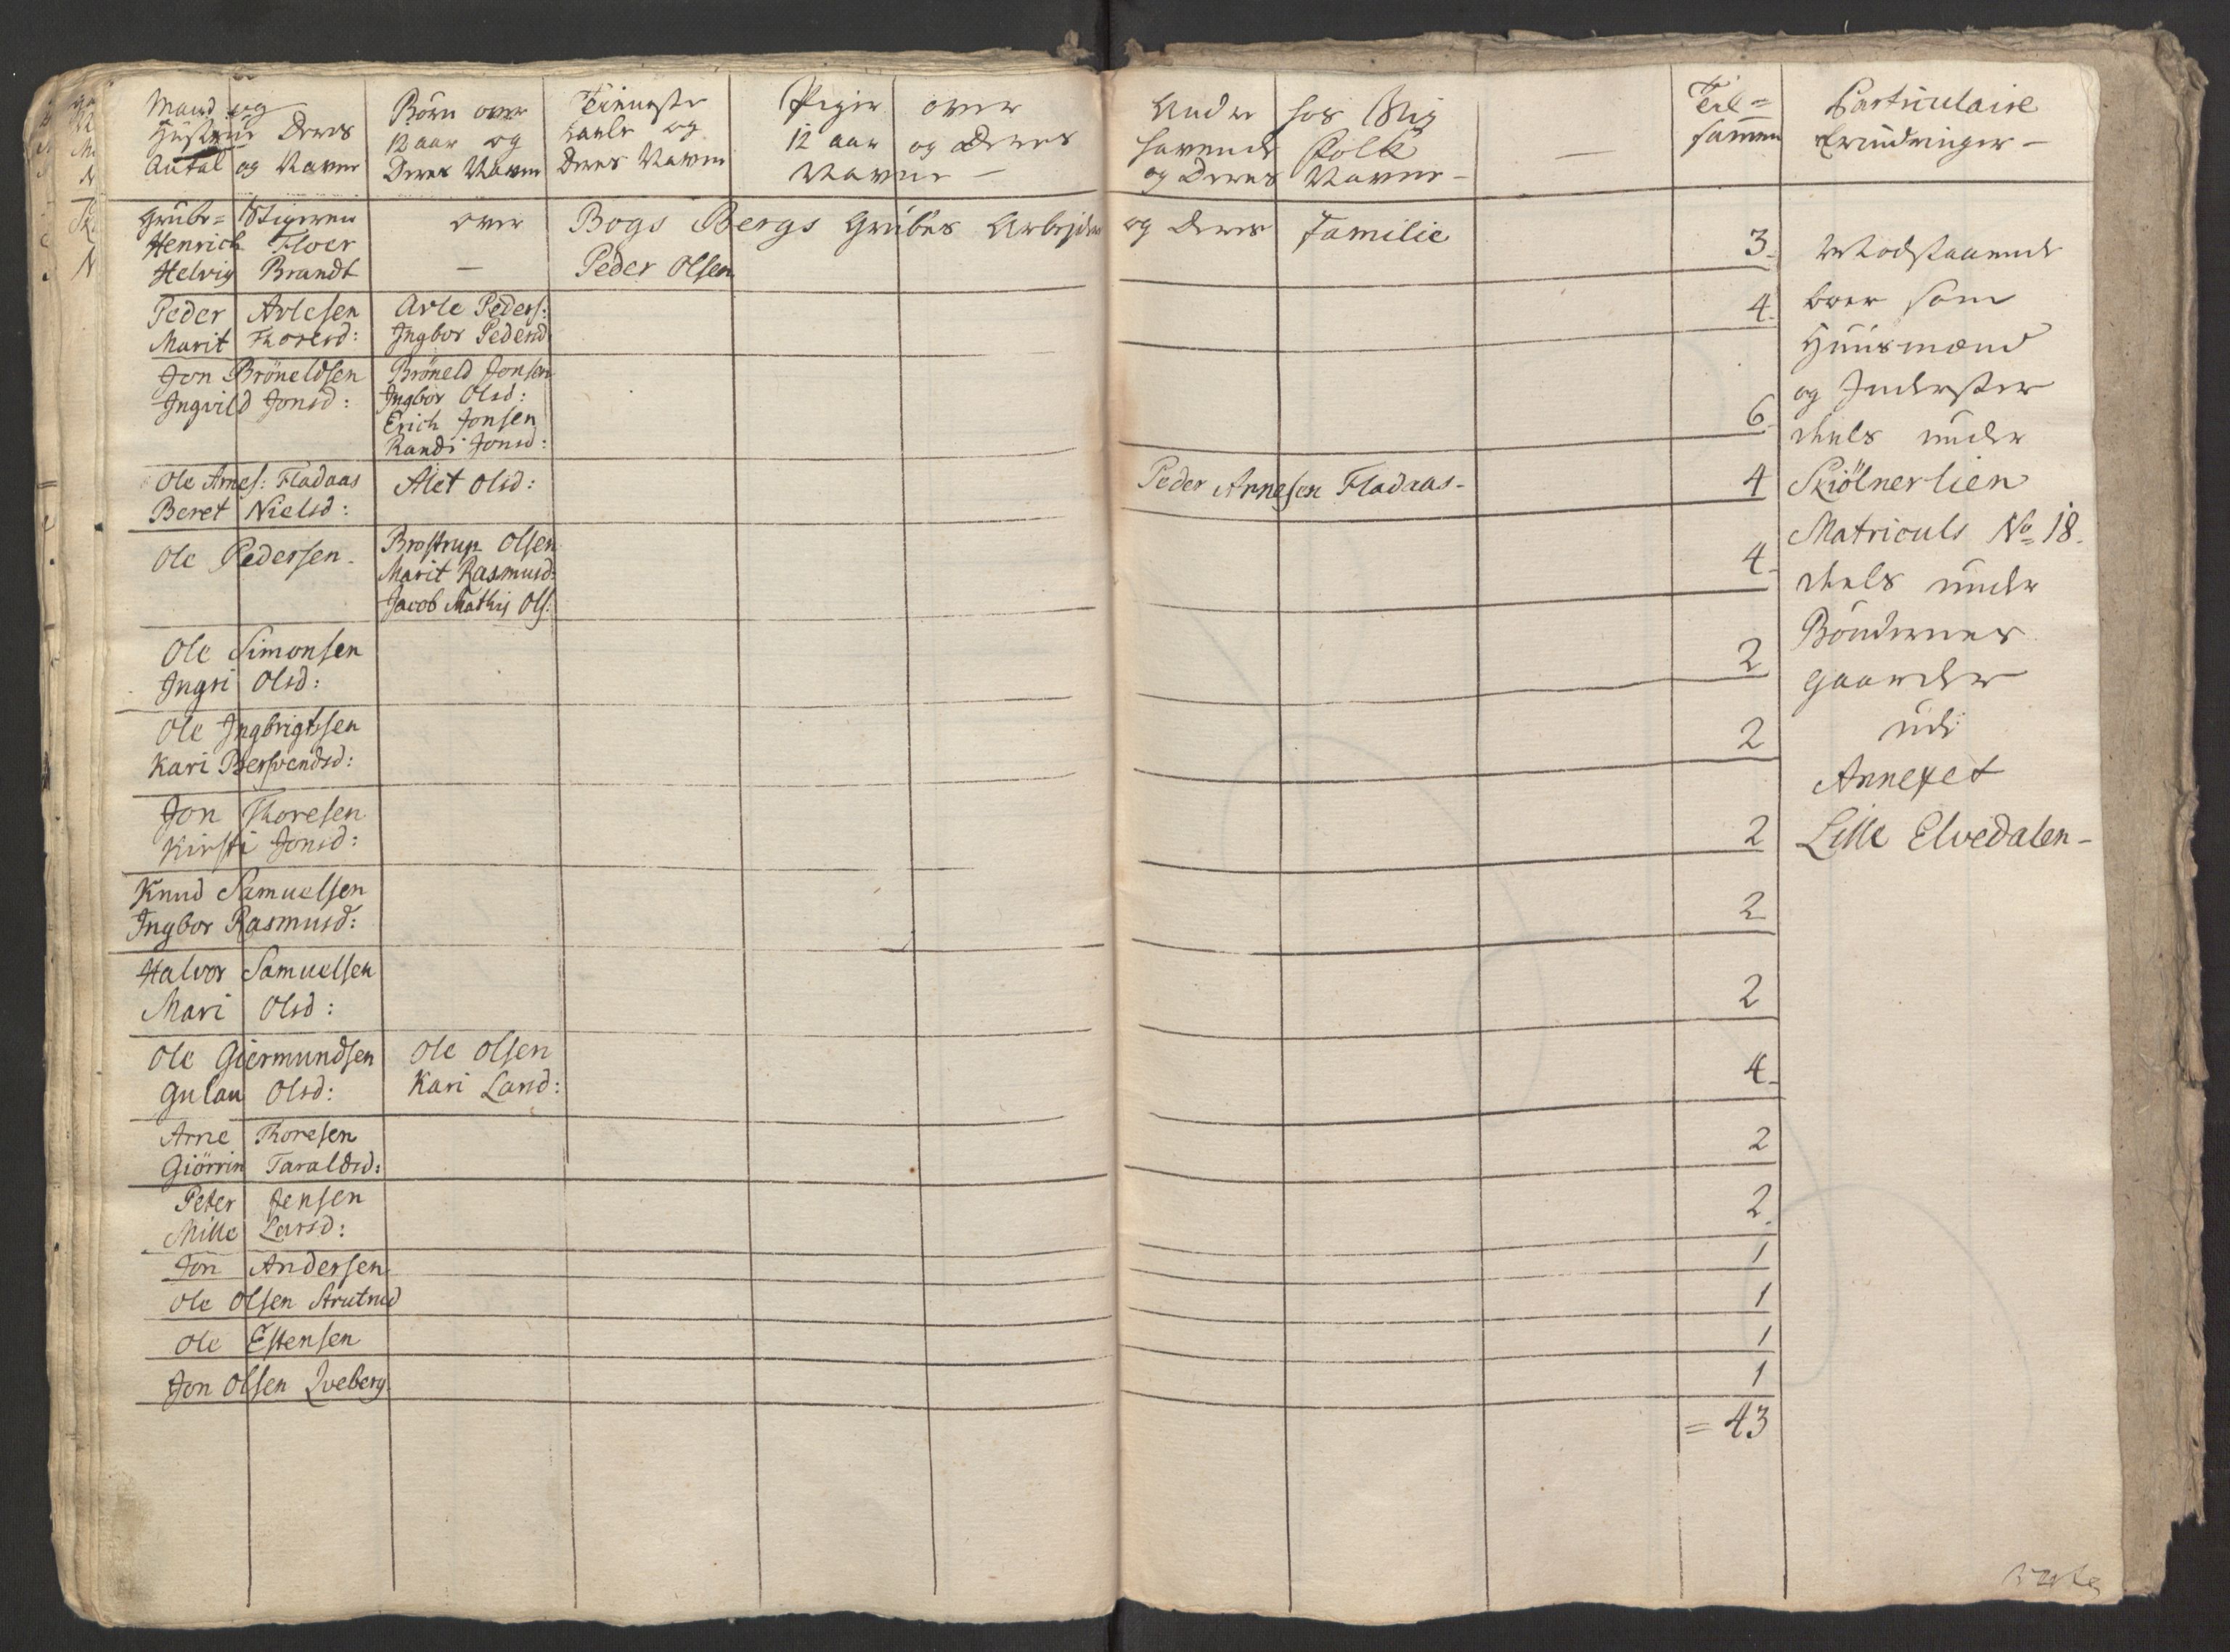 Mand og Hustrue Deres Antal og Navne
Börn over 12 aar og Deres Navne
Tienneste Karle og Deres Navne
Piger over 12 aar og Deres Navne
Andre hos Sig havende Folk og Deres Navne
Til= sammen
Particulaire Erindringer
Grube= Stigeren over Bogs Bergs Grubes Arbejdere og Deres Familie
Henrich Floer
Helvig Brandt — Peder Olsen 3
Peder Arlesen Arle Peders:
Marit Thoresd: Ingbor Pedersd: 4
Jon Bröneldsen Bröneld Jonsen
Ingvild Jonsd: Ingbor Olsd:
Erich Jonsen
Randi Jonsd: 6
Ole Arnes: Fladaas Alet Olsd: Peder Arnesen Fladaas 4
Beret Nielsd:
Ole Pedersen Brostrup Olsen
Marit Rasmusd: 4
Jacob Mathis Ols:
Ole Simonsen 2
Ingri Olsd:
Ole Ingbrigtsen 2
Kari Bersvendsd:
Jon Thoresen 2
Kirsti Jonsd:
Knud Samuelsen 2
Ingbor Rasmusd:
Halvor Samuelsen 2
Mari Olsd:
Ole Giermundsen Ole Olsen 4
Gulau Olsd: Kari Larsd:
Arne Thoresen 2
Giörrin Taraldsd:
Peter Jensen 2
Mille Larsd:
Jon Andersen 1
Ole Olsen Strutrud 1
Ole Estensen 1
Jon Olsen Qveberg 1
= 43
Modstaaende
boer som
Huusmænd
og Inderster
deels under
Skiölnerlien
Matriculs No 18.
deels under
Böndernes
Gaarder
udi
Annexet
Lille Elvedalen